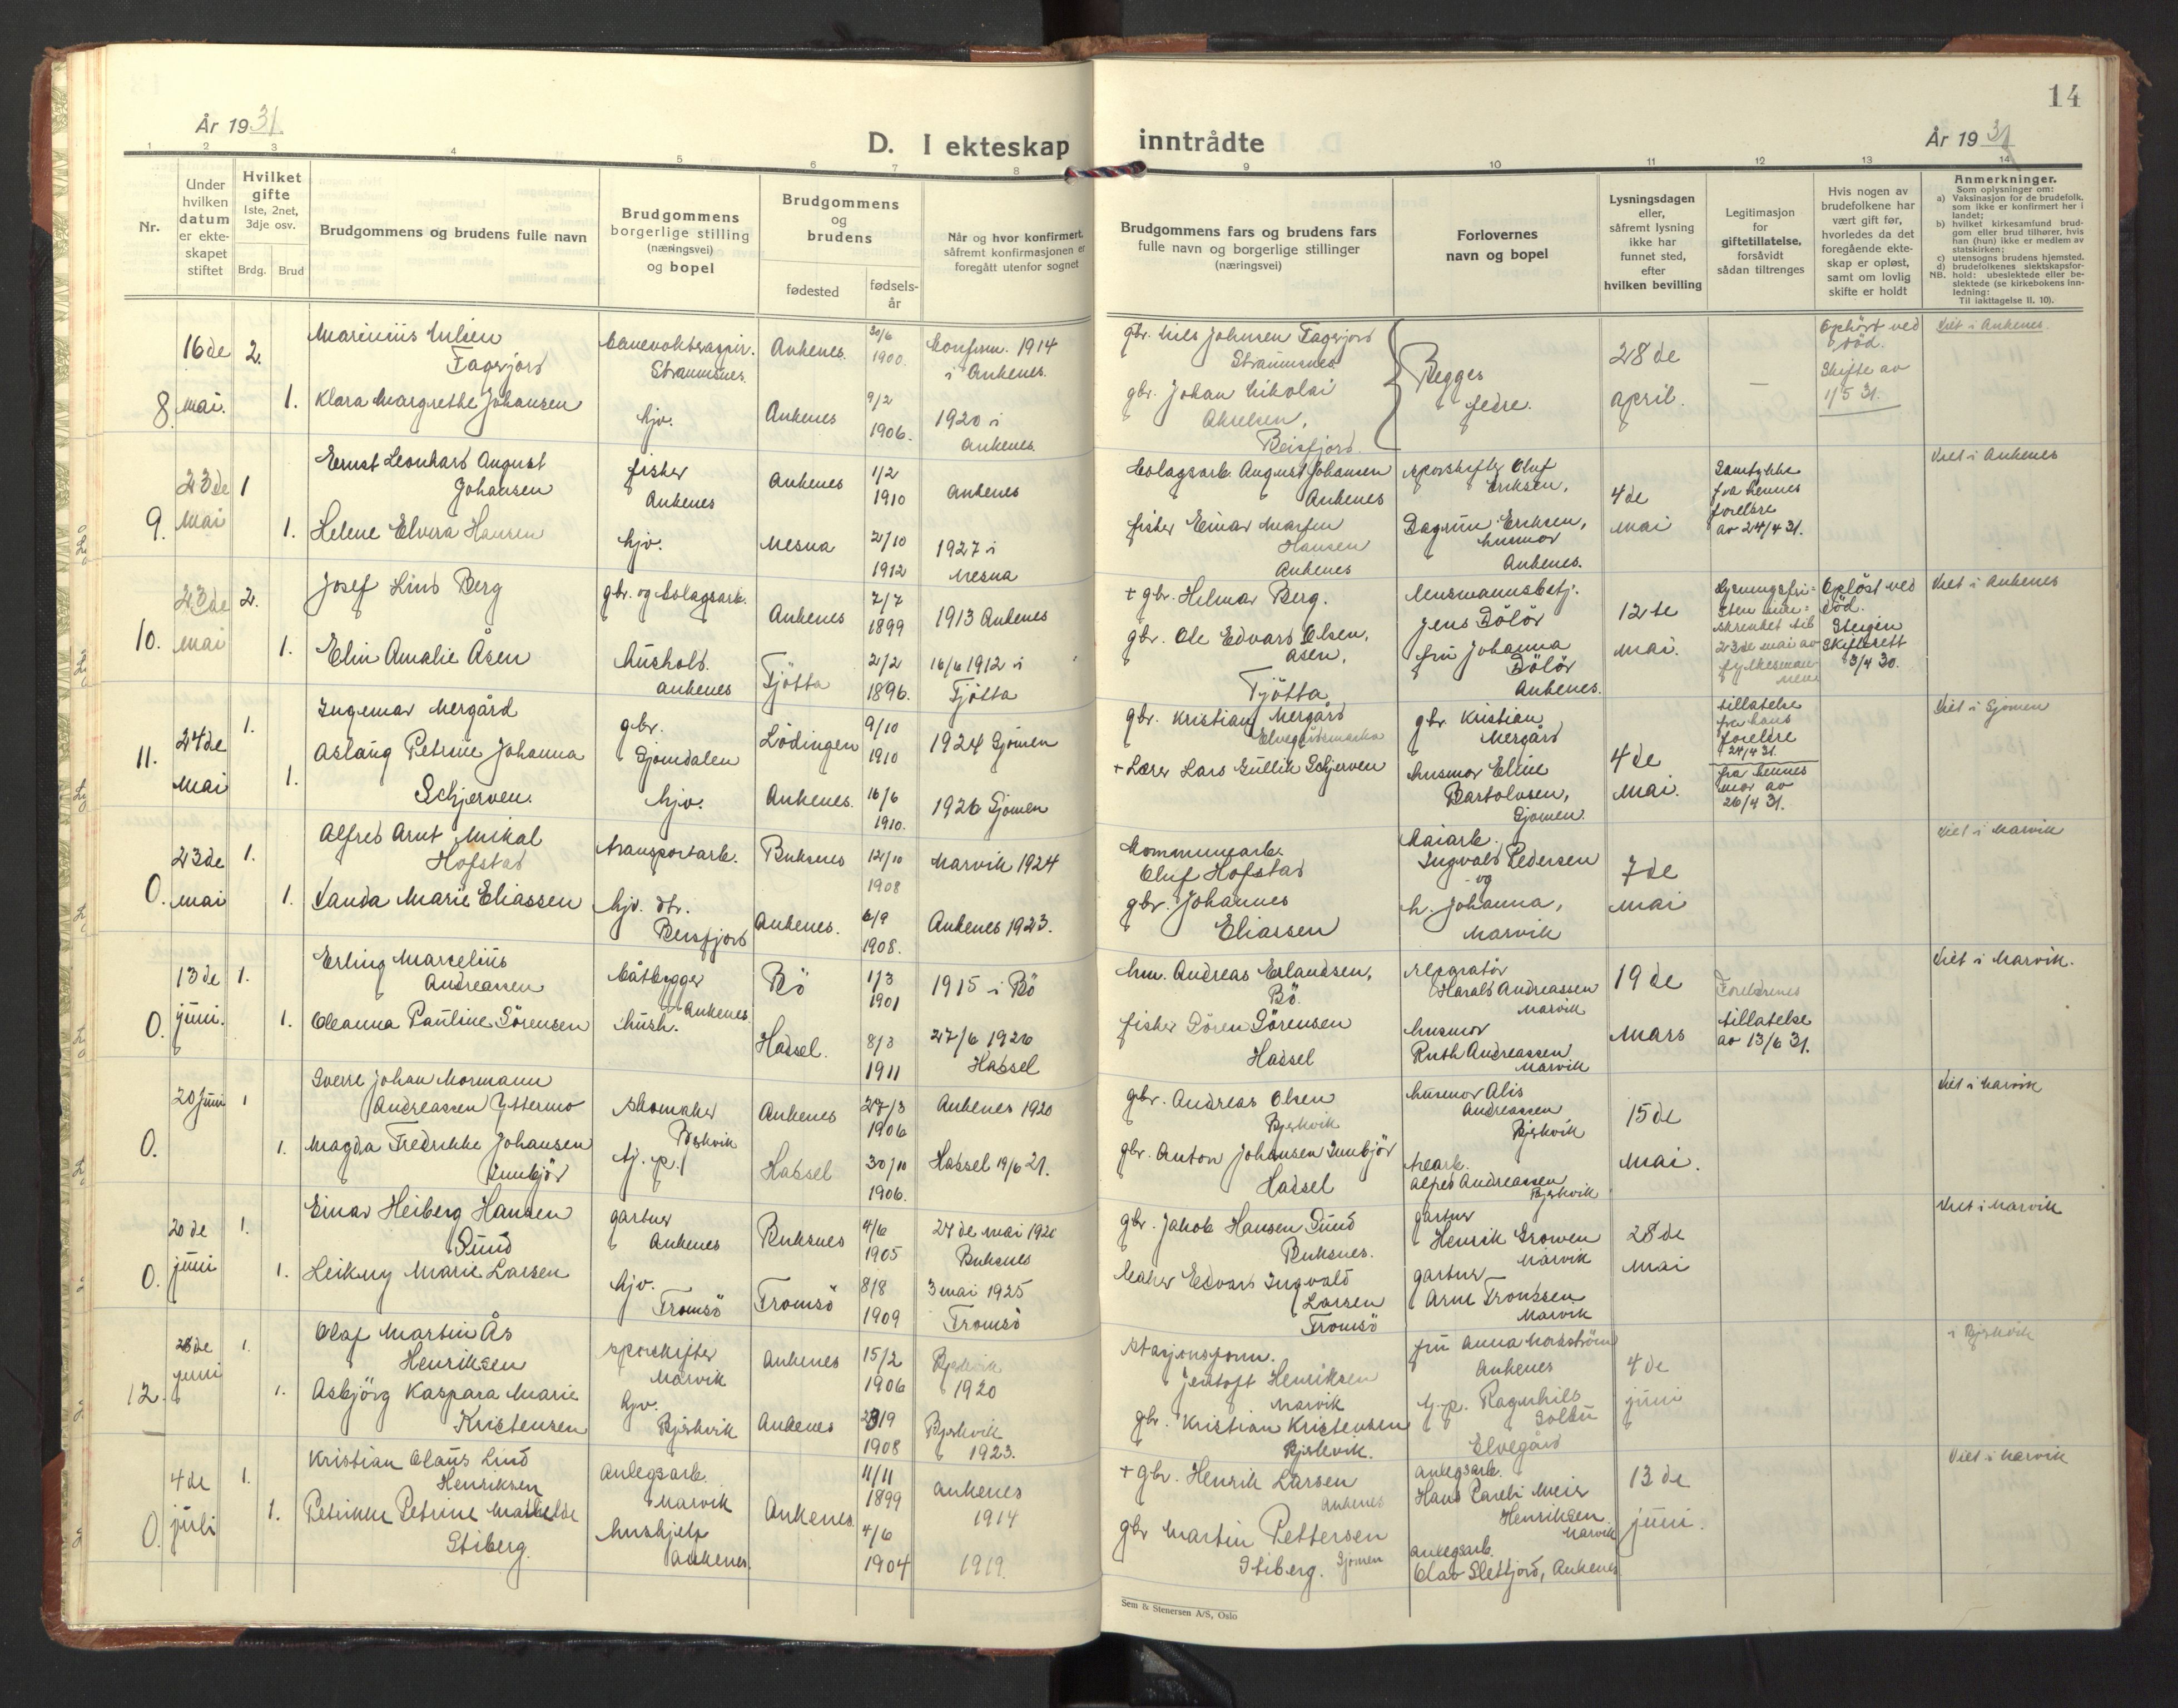 14
År 1931
D. I ekteskap inntrådte
År 1931
1 2 3 4 5 6 7 8 9 10 11 12 13 14
Nr.
Under hvilken datum er ekteskapet stiftet
Hvilket gifte 1ste, 2net, 3dje osv.
Brdg. Brud
Brudgommens og brudens fulle navn
Brudgommens borgerlige stilling (næringsvei) og bopel
Brudgommens og brudens
fødested
fødsels-år
Når og hvor konfirmert, såfremt konfirmasjonen er foregått utenfor sognet
Brudgommens fars og brudens fars fulle navn og borgerlige stillinger (næringsvei)
Forlovernes navn og bopel
Lysningsdagen eller, såfremt lysning ikke har funnet sted, efter hvilken bevilling
Legitimasjon for giftetillatelse, forsåvidt sådan tiltrenges
Hvis nogen av brudefolkene har vært gift før, hvorledes da det foregående ekteskap er opløst, samt om lovlig skifte er holdt
Anmerkninger.
Som oplysninger om:
a) Vaksinasjon for de brudefolk. som ikke er konfirmert her i landet;
b) hvilket kirkesamfund brudgom eller brud tilhører, hvis han (hun) ikke er medlem av statskirken;
c) utensogns brudens hjemsted.
d) brudefolkenes slektskapsforhold: ubeslektede eller beslektede (se kirkebokens innledning:
NB.
Til iakttagelse II. 10).
8. 16de mai. 2. 1.
Fagerjord
Straumsnes
Ankenes. 30/6 1900.
Konfirm. 1914 i Ankenes.
Klara Margrethe Johansen
hjv.
Ankenes 9/2 1906.
1920 i Ankenes.
gbr. Nils Johnsen Fagerjord
Straumsnes
gbr. Johan Nikolai
Beisfjord.
Begges fedre.
28de april.
—
Ophört ved död.
Skifte av 1/5 31.
Viet i Ankenes.
9. 23de mai 1 1.
Ernst Leonhard August Johansen
fisker Ankenes
Ankenes 1/2 1910 Ankenes
Helene Elvera Hansen
hjv.
21/10 1912
1927 i
August Johansen Ankenes
fisker Einar Martin Hansen Ankenes
Oluf Eriksen,
Dagrun Eriksen, husmor Ankenes.
4de mai
Samtykke fra hennes foreldre av 24/4 31.
Viet i Ankenes
10. 23de mai 2. 1.
Josef Lind Berg
Ankenes 7/7 1899 1913 Ankenes
Elin Amalie Åsen
Hushold. Ankenes
Tjötta 2/2 1896. 16/6 1912 i Tjötta
+ gbr. Hilmar Berg.
gbr. Ole Edvard Olsen, Åsen, Tjötta
Jens Dölör
fru Johanna Dölör Ankenes.
12te mai.
23de mai av
Oplöst ved död.
Steigen Skifterett 3/4 30.
Viet i Ankenes
11. 24de mai 1. 1.
Ingemar Mergård
gbr. Sjomdalen
Lödingen 9/10 1910 1924 Sjomen
Aslaug Petrine Johanna Schjerven.
hjv.
Ankenes. 16/6 1910. 1926 Sjomen
gbr. Kristian Mergård
Elvegårdsmarka
+ Lærer Lars Gullik Schjerven
gbr. Kristian Mergård
husmor Eline Bartolosen, Sjomen.
4de mai.
tillatelse fra hans foreldre 24/4 31.
fra hennes mor av 26/4 31.
Viet i Sjomen
0. 23de mai 1. 1.
Alfred Arnt Mikal Hofstad
transportarb.
Buksnes 12/10 1908 Narvik 1924
Vanda Marie Eliassen
hjv. dtr. Beisfjord
Ankenes. 6/9 1908. Ankenes 1923.
Kommunearb. Oluf Hofstad
gbr. Johannes Eliassen
Kaiarb. Ingvald Pedersen og h. Johanna, Narvik
7de mai
Viet i Narvik
0. 13de juni. 1. 1.
Erling Marcelius Andreassen
båtbygger Ankenes.
Bö 1/3 1901 1915 i Bö
Oleanna Pauline Sörensen
hush.
Hadsel. 8/3 1911 27/6 1926 Hadsel
hm. Andreas Erlandsen, Bö.
fisker Sören Sörensen Hadsel
Harald Andreassen Narvik
husmor Ruth Andreassen Narvik
19de mars
Foreldrenes tillatelse av 13/6 31.
Viet i Narvik.
0. 20 juni 1 1.
Sverre Johan Normann Andreassen Yttermo
skomaker Bjerkvik
Ankenes 27/3 1906 Ankenes 1920
Magda Fredrikke Johansen Innbjör
tj.p.
Hadsel 30/10 1906. Hadsel 19/6 21.
gbr. Andreas Olsen Bjerkvik
gbr. Anton Johansen Innbjör Hadsel
husmor Alis Andreassen Bjerkvik
Alfred Andreassen Bjerkvik
15de mai.
Viet i Narvik
0. 20de juni 1. 1.
Einar Heiberg Hansen Sund
gartner Ankenes
Buksnes 4/6 1905 27de mai 1920 Buksnes
Leikny Marie Larsen
hjv. Tromsö
Tromsö 8/8 1909 3 mai 1925 Tromsö
gbr. Jakob Hansen Sund Buksnes.
baker Edvard Ingvald Larsen Tromsö
gartner Henrik Growen Narvik
gartner Arne Trondsen Narvik
28de mai
Viet i Narvik
12. 28de juni 1. 1.
Olaf Martin Ås Henriksen
sporskifter Narvik
Ankenes 15/2 1906 Bjerkvik 1920
Asbjörg Kaspara Marie Kristensen
hjv. Bjerkvik
Ankenes 23/9 1908 Bjerkvik 1923.
stasjonsform. Jentoft Henriksen Narvik
gbr. Kristian Kristensen Bjerkvik.
fru Anna Norström Ankenes
t.p. Ragnhild Elvegård
4de juni
i Bjerkvik
0. 4de juli 1. 1.
Kristian Olaus Lind Henriksen
anlegsarb. Narvik
Ankenes. 11/11 1899 Ankenes 1914
Petrikke Petrine Mathilde Stiberg.
hushjelp Ankenes.
4/6 1904 1919.
+ gbr. Henrik Larsen Ankenes
gbr Martin Pettersen Stiberg. Sjomen
anlegsarb. Hans Pareli Meier Henriksen Narvik
anlegsarb. Olav Slettjord, Ankenes
13de juni.
Viet i Narvik
Sem & Stenersen A/S, Oslo